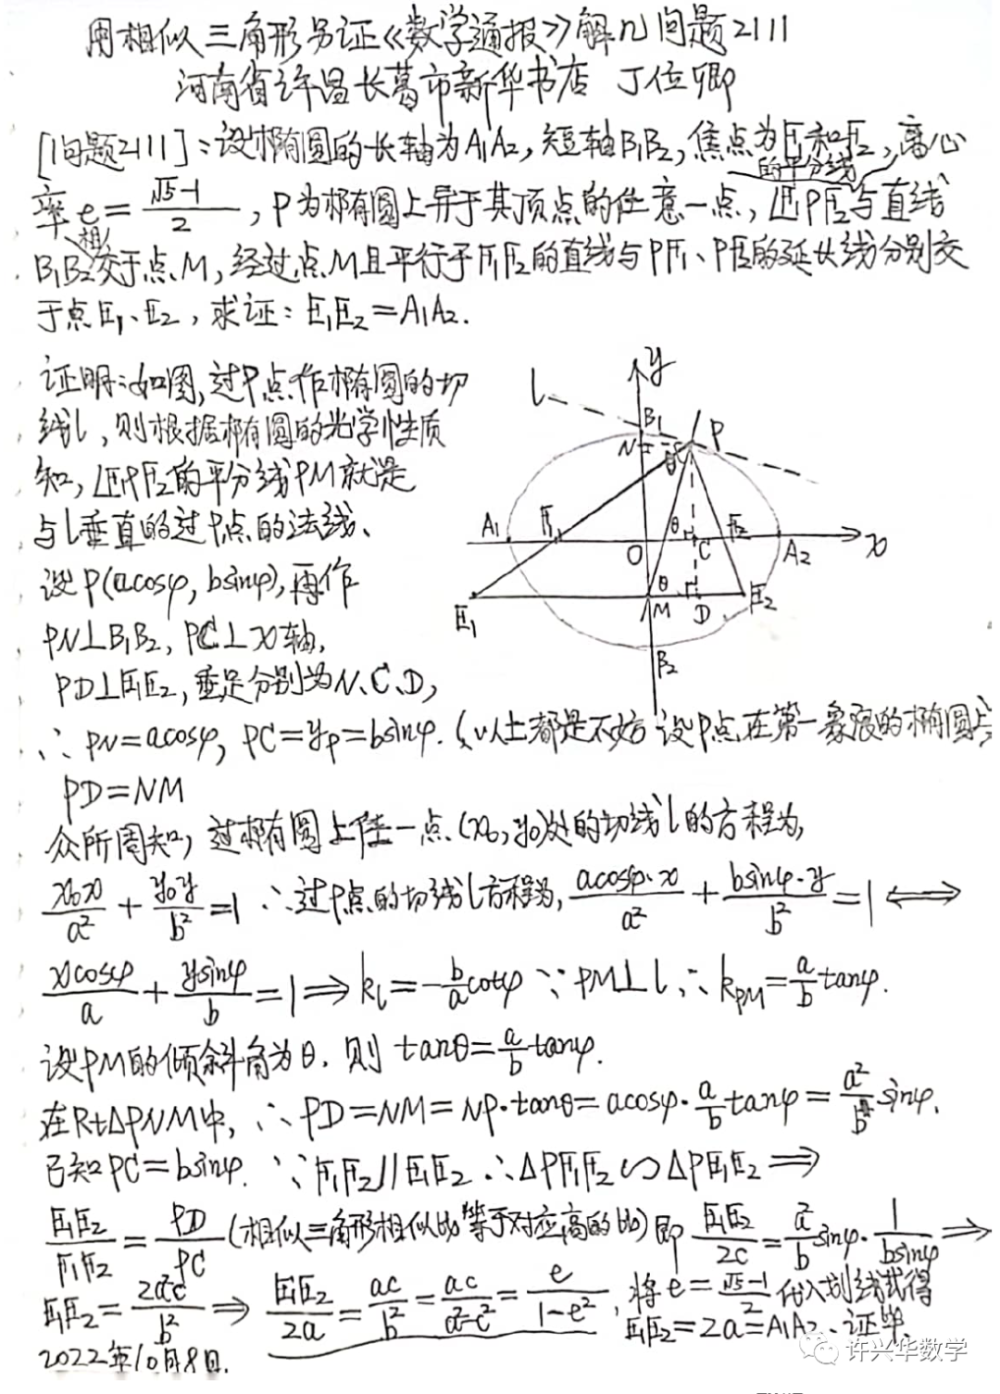 用相似三角形另证《数学通报》解几问题2111
河南省许昌长葛市新华书店 丁位卿
[问题2111]:设椭圆的长轴为A₁A₂,短轴B₁B₂,焦点为F₁和F₂,离心
率e=(√5-1)/2,P为椭圆上异于其顶点的任意一点,∠F₁PF₂的平分线与直线
B₁B₂相交于点M,经过点M且平行于F₁F₂的直线与PF₁、PF₂的延长线分别交
于点E₁、E₂,求证:E₁E₂=A₁A₂.
证明:如图,过P点作椭圆的切
线l,则根据椭圆的光学性质
知,∠F₁PF₂的平分线PM就是
与l垂直的过P点的法线、
设P(acosφ,bsinφ),再作
PN⊥B₁B₂,PC⊥x轴,
PD⊥E₁E₂,垂足分别为N、C、D,
l
y
B₁
N
P
θ
A₁
F₁
O
θ
C
F₂
A₂
x
E₁
θ
M
D
E₂
B₂
∴PN=acosφ,PC=y_P=bsinφ.(以上都是不妨设P点在第一象限的椭圆上)
PD=NM
众所周知,过椭圆上任一点(x₀,y₀)处的切线l的方程为,
x₀x/a²+y₀y/b²=1 ∴过P点的切线l方程为,acosφ·x/a²+bsinφ·y/b²=1⟺
xcosφ/a+ysinφ/b=1⇒k_l=-(b/a)cotφ ∵PM⊥l,∴k_PM=(a/b)tanφ.
设PM的倾斜角为θ,则 tanθ=(a/b)tanφ.
在Rt△PNM中,∴PD=NM=NP·tanθ=acosφ·(a/b)tanφ=(a²/b)sinφ.
已知PC=bsinφ. ∵F₁F₂//E₁E₂ ∴△PF₁F₂∽△PE₁E₂⇒
E₁E₂/F₁F₂=PD/PC(相似三角形相似比等于对应高的比)即 E₁E₂/2c=(a²/b)sinφ·1/(bsinφ)⇒
E₁E₂=2a²c/b²⇒E₁E₂/2a=ac/b²=ac/(a²-c²)=e/(1-e²),将e=(√5-1)/2代入划线式得
E₁E₂=2a=A₁A₂、证毕.
2022年10月8日.
许兴华数学